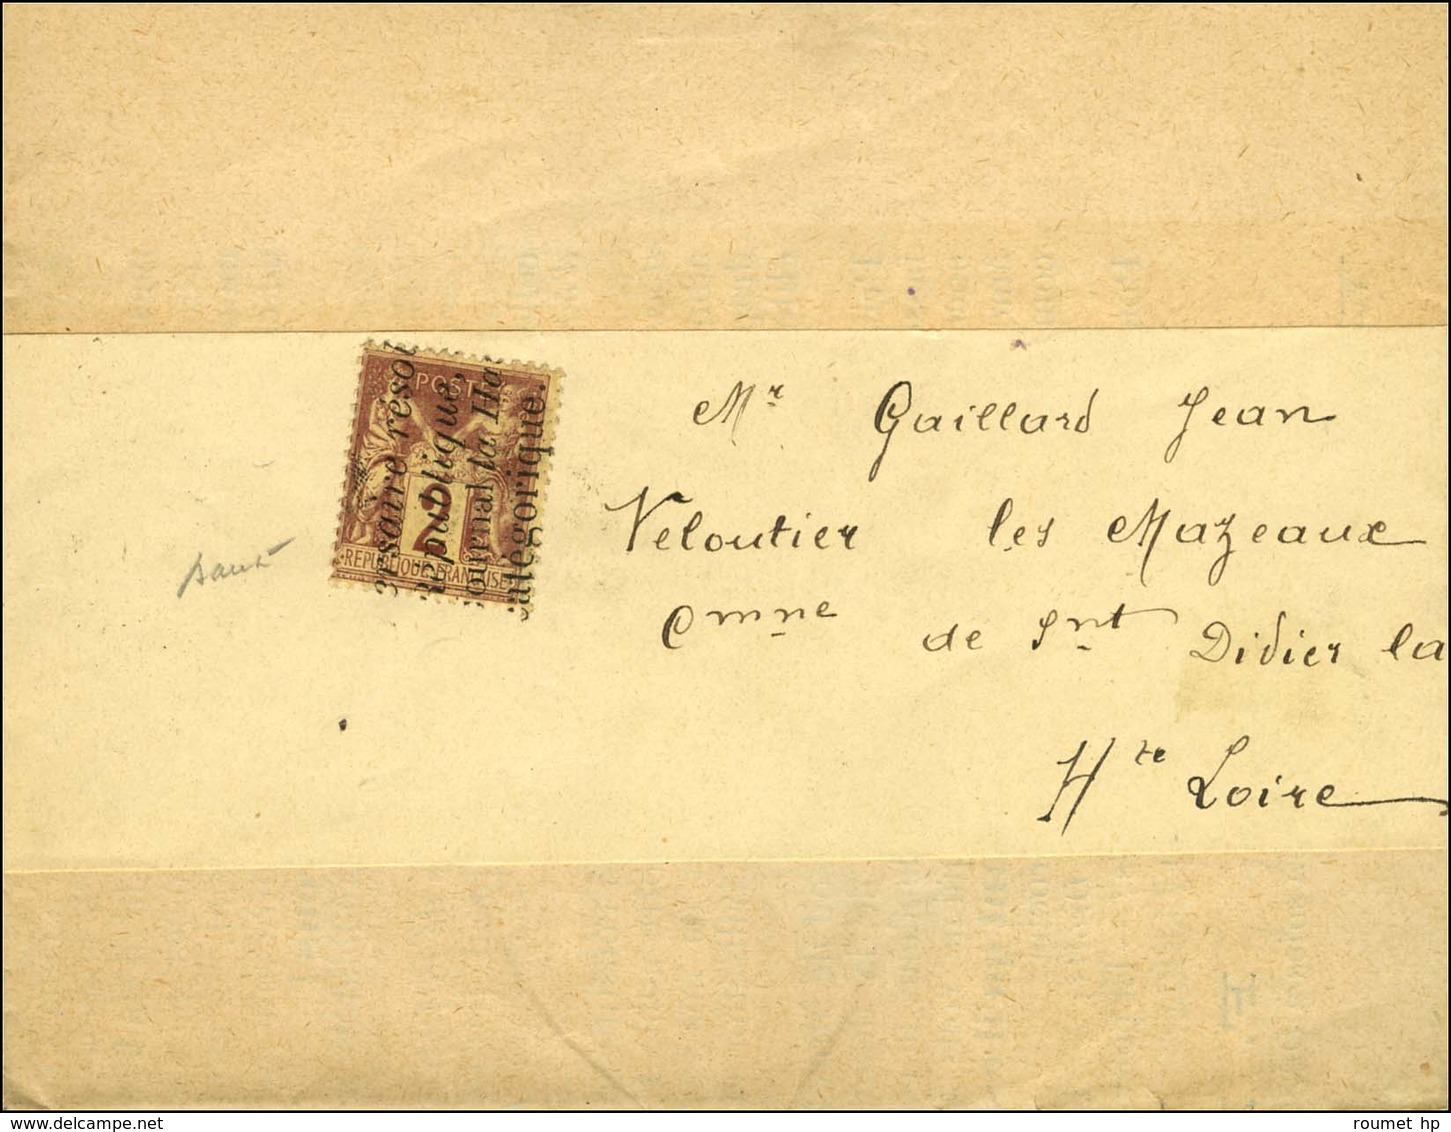 POSTES
2
REPUBLIQUE FRANCAISE
ersaire résol
publique,
ournal la Ha
atégorique.
Mr Gaillard Jean
Veloutier les Mazeaux
Cmne de Snt Didier la
Hte Loire
roumet hp